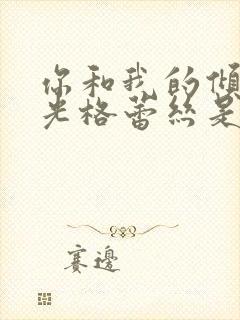 你和我的傾
光格蕾絲是
賽邊